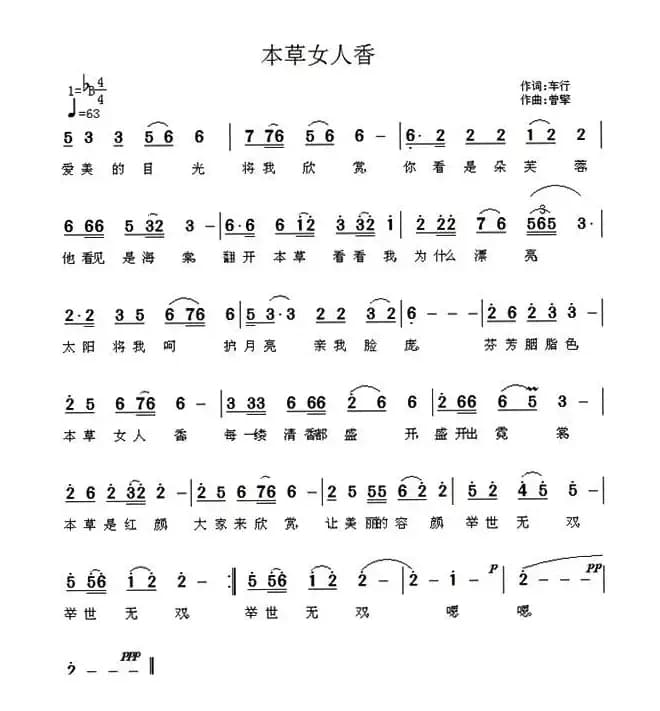 本草女人香
1=♭B 4/4
♩=63
作词:车行
作曲:曾擎
5 3 3 5 6 6 | 7 76 5 6 6 - | 6· 2 2 2 1 2 2
爱美的目光 将我欣赏 你看是朵芙蓉
6 66 5 32 3 - | 6·6 6 12 3 32 1 | 2 22 7 6 565 3· |
他看见是海棠 翻开本草看看我 为什么漂亮
2·2 3 5 6 76 6 | 5 3·3 2 2 3 2 | 6 - - - | 2 6 2 3 3 |
太阳将我呵护 月亮亲我脸庞 芬芳胭脂色
2 5 6 76 6 - | 3 33 6 66 2 6 6 | 2 66 6 5 3 - |
本草女人香 每一缕清香都盛开 盛开出霓裳
2 6 2 32 2 - | 2 5 6 76 6 - | 2 5 55 6 2 2 | 5 2 4 5 5 - |
本草是红颜 大家来欣赏 让美丽的容颜 举世无双
5 56 1 2 2 - :| 5 56 1 2 2 - - - | 2 - 1 - p | 2 - - - pp |
举世无双 举世无双 嗯 嗯
2 - - - ppp ‖